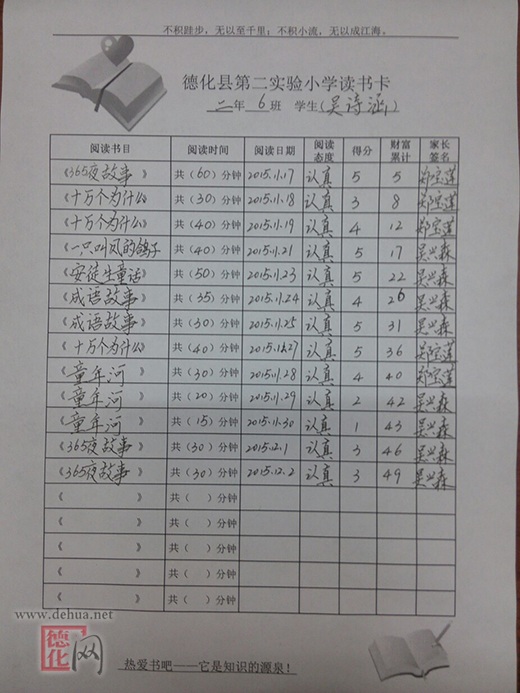 不积跬步，无以至千里；不积小流，无以成江海。
德化县第二实验小学读书卡
二年 6 班 学生(吴诗涵)
阅读书目 阅读时间 阅读日期 阅读态度 得分 财富累计 家长签名
《365夜故事》 共(60)分钟 2015.11.17 认真 5 5 郑宝莲
《十万个为什么》 共(30)分钟 2015.11.18 认真 3 8 郑宝莲
《十万个为什么》 共(40)分钟 2015.11.19 认真 4 12 郑宝莲
《一只叫凤的鸽子》 共(40)分钟 2015.11.21 认真 5 17 吴兴森
《安徒生童话》 共(50)分钟 2015.11.23 认真 5 22 吴兴森
《成语故事》 共(35)分钟 2015.11.24 认真 4 26 吴兴森
《成语故事》 共(30)分钟 2015.11.25 认真 5 31 吴兴森
《十万个为什么》 共(40)分钟 2015.11.27 认真 5 36 郑宝莲
《童年河》 共(30)分钟 2015.11.28 认真 4 40 郑宝莲
《童年河》 共(20)分钟 2015.11.29 认真 2 42 吴兴森
《童年河》 共(15)分钟 2015.11.30 认真 1 43 吴兴森
《365夜故事》 共(30)分钟 2015.12.1 认真 3 46 吴兴森
《365夜故事》 共(30)分钟 2015.12.2 认真 3 49 吴兴森
《 》 共( )分钟
《 》 共( )分钟
《 》 共( )分钟
《 》 共( )分钟
《 》 共( )分钟
www.dehua.net
德化网
热爱书吧——它是知识的源泉！